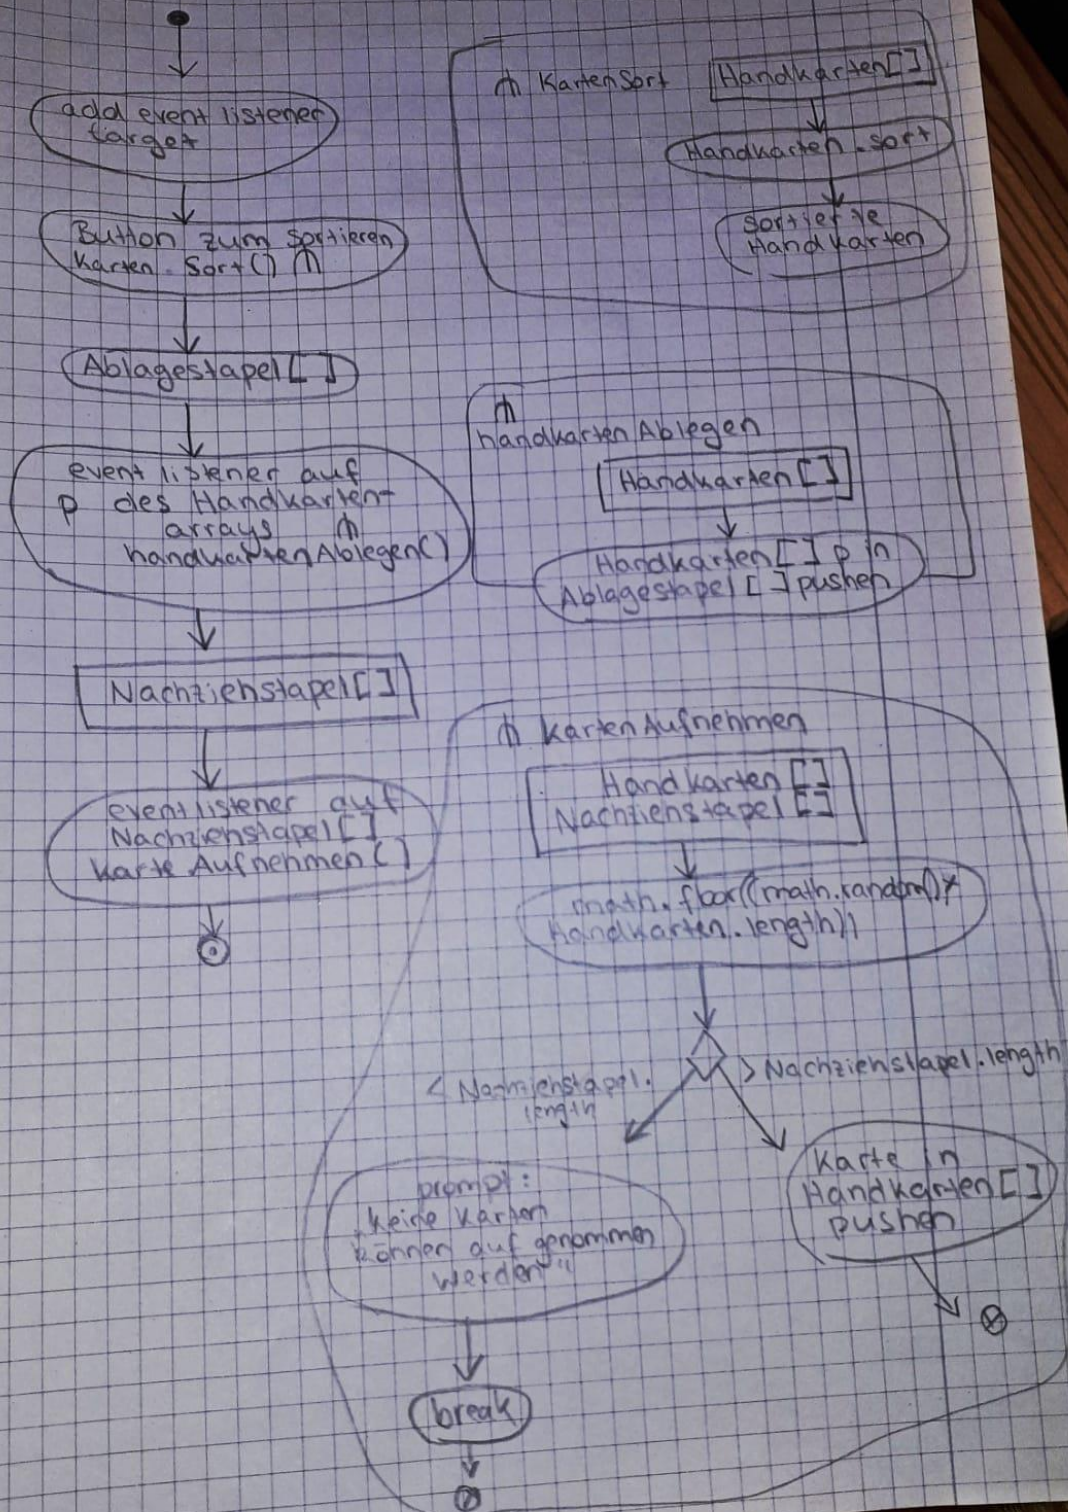 add event listener
target
Button zum Sortieren
Karten.Sort()
Ablagestapel[ ]
event listener auf
p des Handkarten-
arrays
handkartenAblegen()
Nachziehstapel[ ]
eventlistener auf
Nachziehstapel[ ]
Karte Aufnehmen()
KartenSort
Handkarten[ ]
Handkarten.sort
Sortierte
Handkarten
handkartenAblegen
Handkarten[ ]
Handkarten[ ] p in
Ablagestapel[ ] pushen
KartenAufnehmen
Handkarten[ ]
Nachziehstapel[ ]
math.floor((math.random()*
Handkarten.length))
< Nachziehstapel.
length
> Nachziehstapel.length
prompt:
"keine Karten
können aufgenommen
werden"
break
Karte in
Handkarten[ ]
pushen